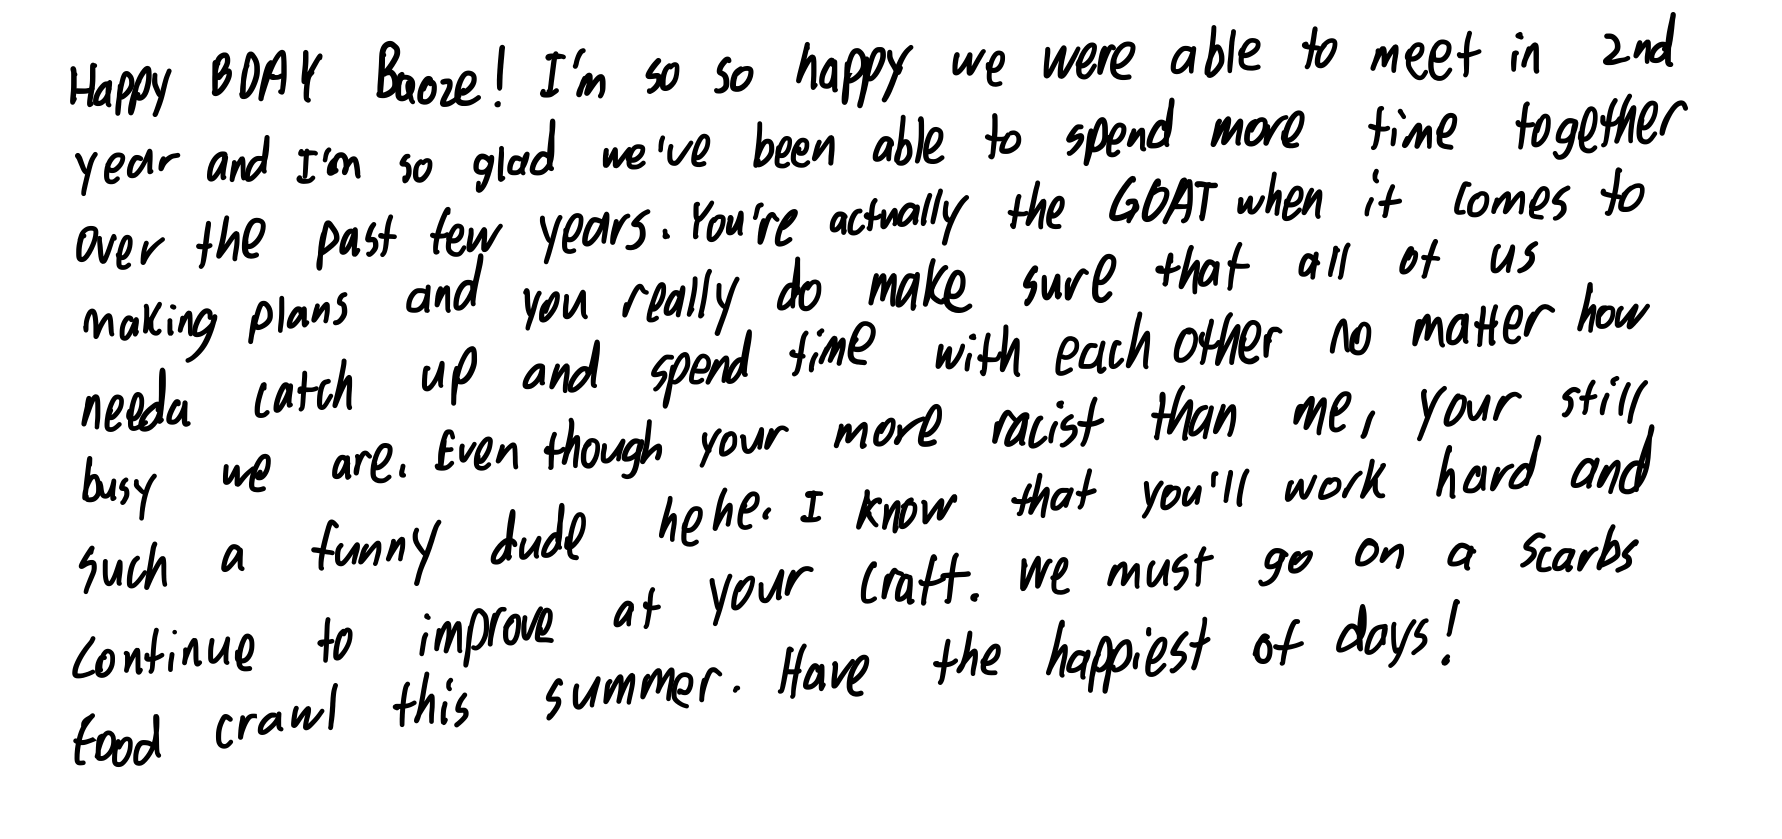 Happy BDAY Baoze! I'm so so happy we were able to meet in 2nd
year and I'm so glad we've been able to spend more time together
over the past few years. You're actually the GOAT when it comes to
making plans and you really do make sure that all of us
needa catch up and spend time with each other no matter how
busy we are. Even though your more racist than me, your still
such a funny dude hehe. I know that you'll work hard and
continue to improve at your craft. We must go on a scarbs
food crawl this summer. Have the happiest of days!